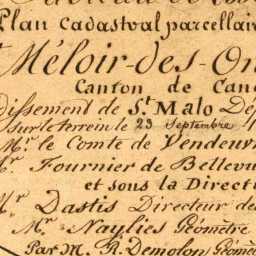 Plan Cadastral parcellair
Méloir-des-On
Canton de Canc
dissement de St. Malo Dép
sur le terrein le 23 septembre
Mr. le Comte de Vendeuv
Mr. Fournier de Bellevu
et sous la Directi
Mr. Dastis Directeur de
Mr. Naylies Géomètre
Par M. R. Demolon Géomè